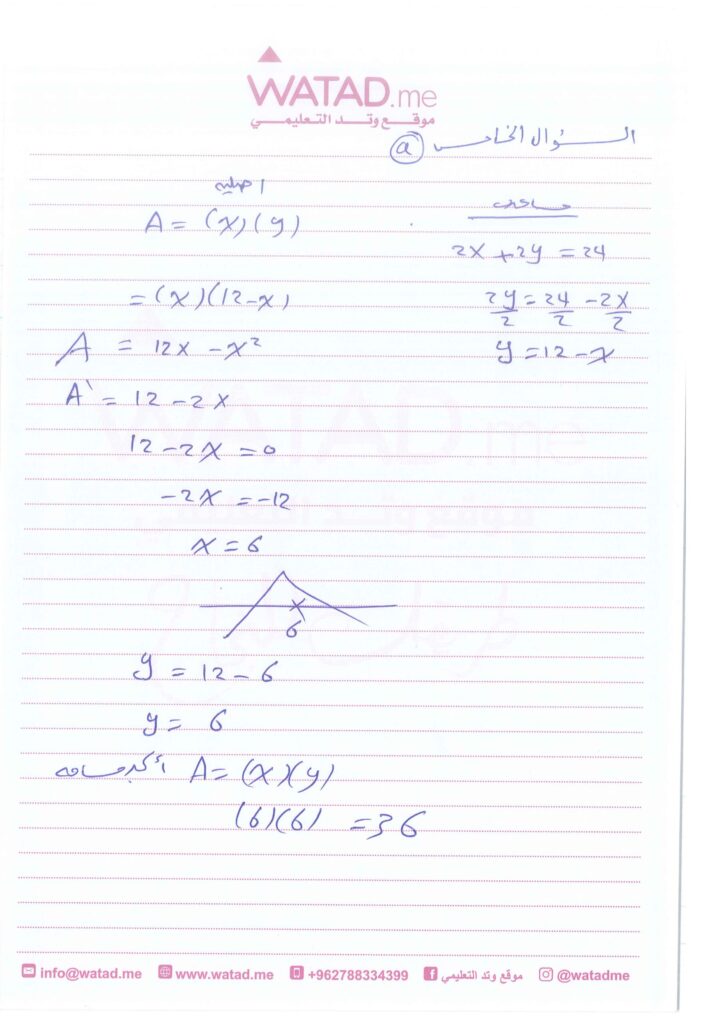 WATAD.me
موقع وتد التعليمي
السؤال الخامس (a)
اصليه
A = (x)(y)
= (x)(12-x)
A = 12x - x²
A` = 12 - 2x
12 - 2x = 0
-2x = -12
x = 6
6
y = 12 - 6
y = 6
أكبر مساحه A = (x)(y)
(6)(6) = 36
2x + 2y = 24
2y/2 = 24/2 - 2x/2
y = 12 - x
info@watad.me www.watad.me +962788334399 موقع وتد التعليمي @watadme